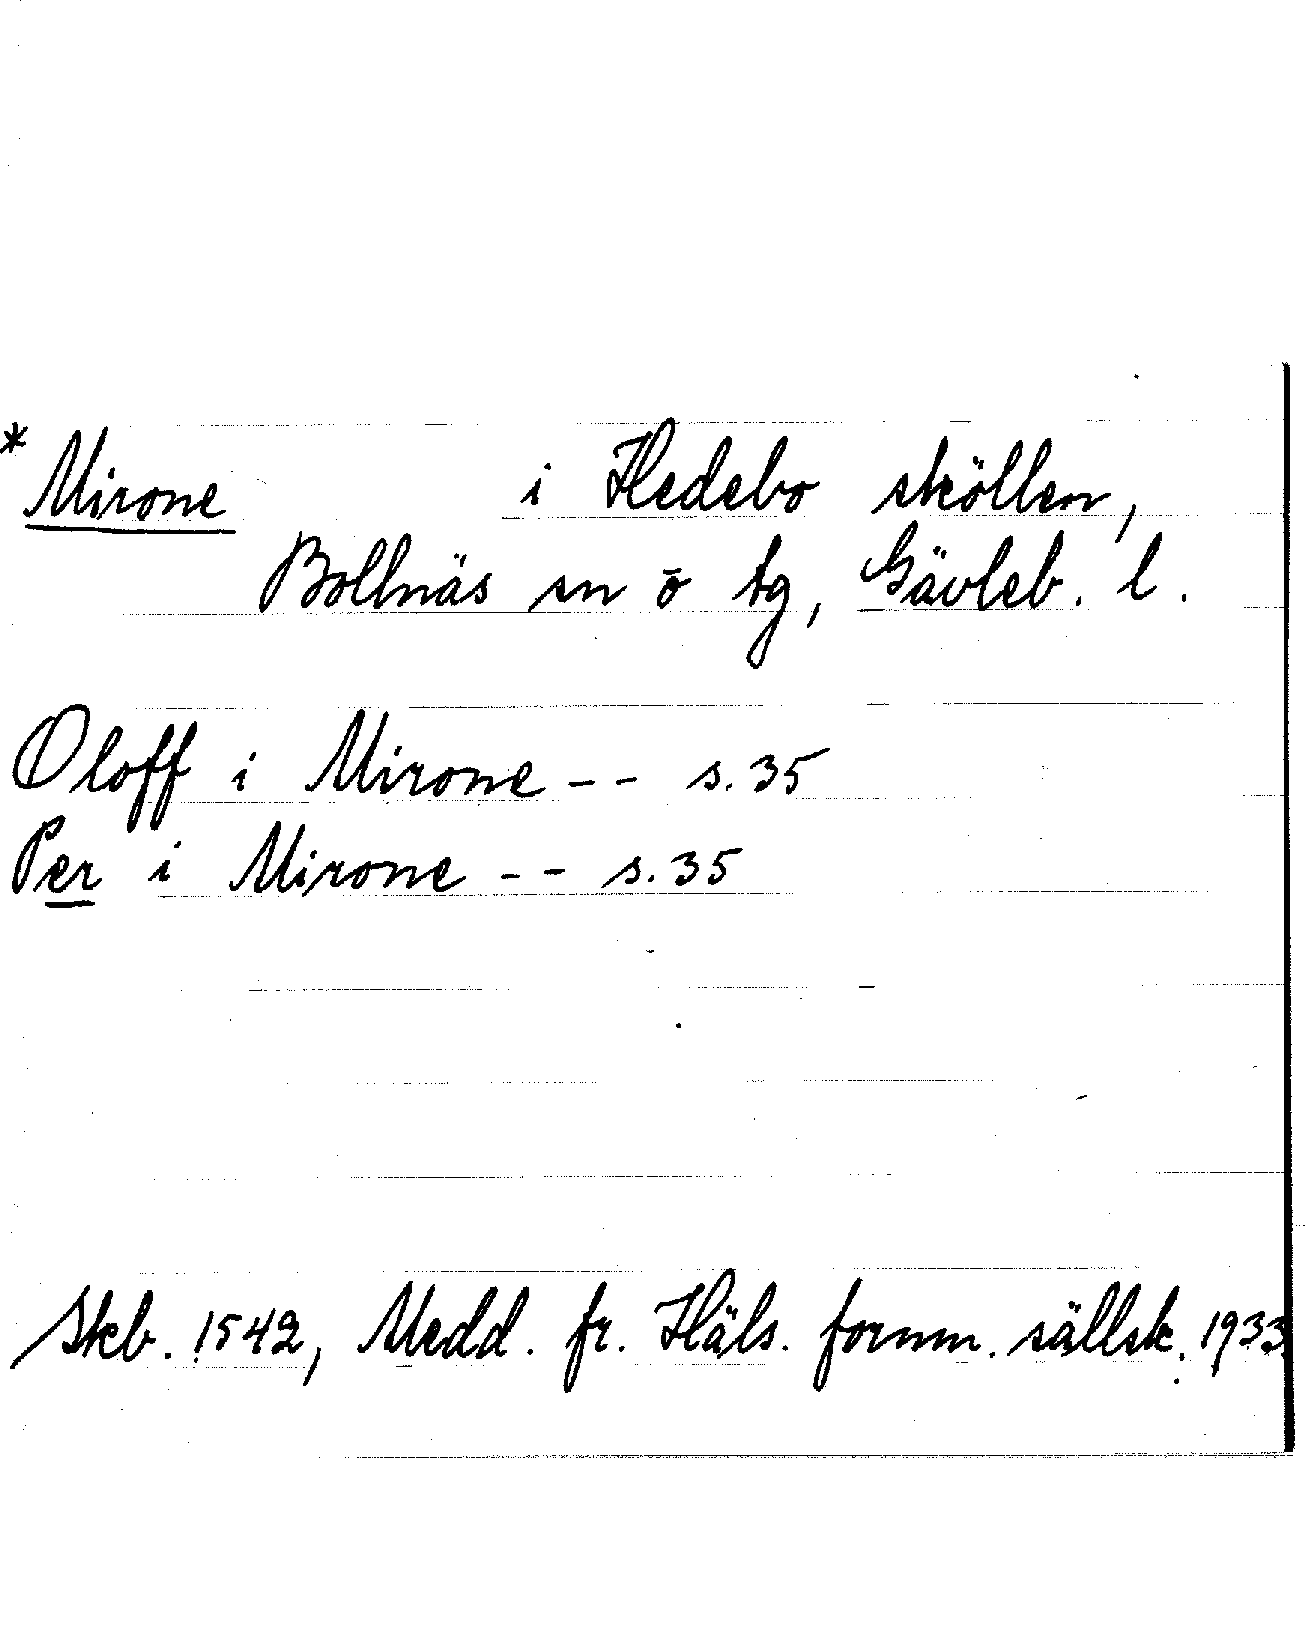 *Mirone i Hedebo sköllen,
Bollnäs sn o tg, Gävleb. l.
Oloff i Mirone -- s. 35
Per i Mirone -- s. 35
Skb. 1542, Medd. fr. Häls. fornm. sällsk. 1933.